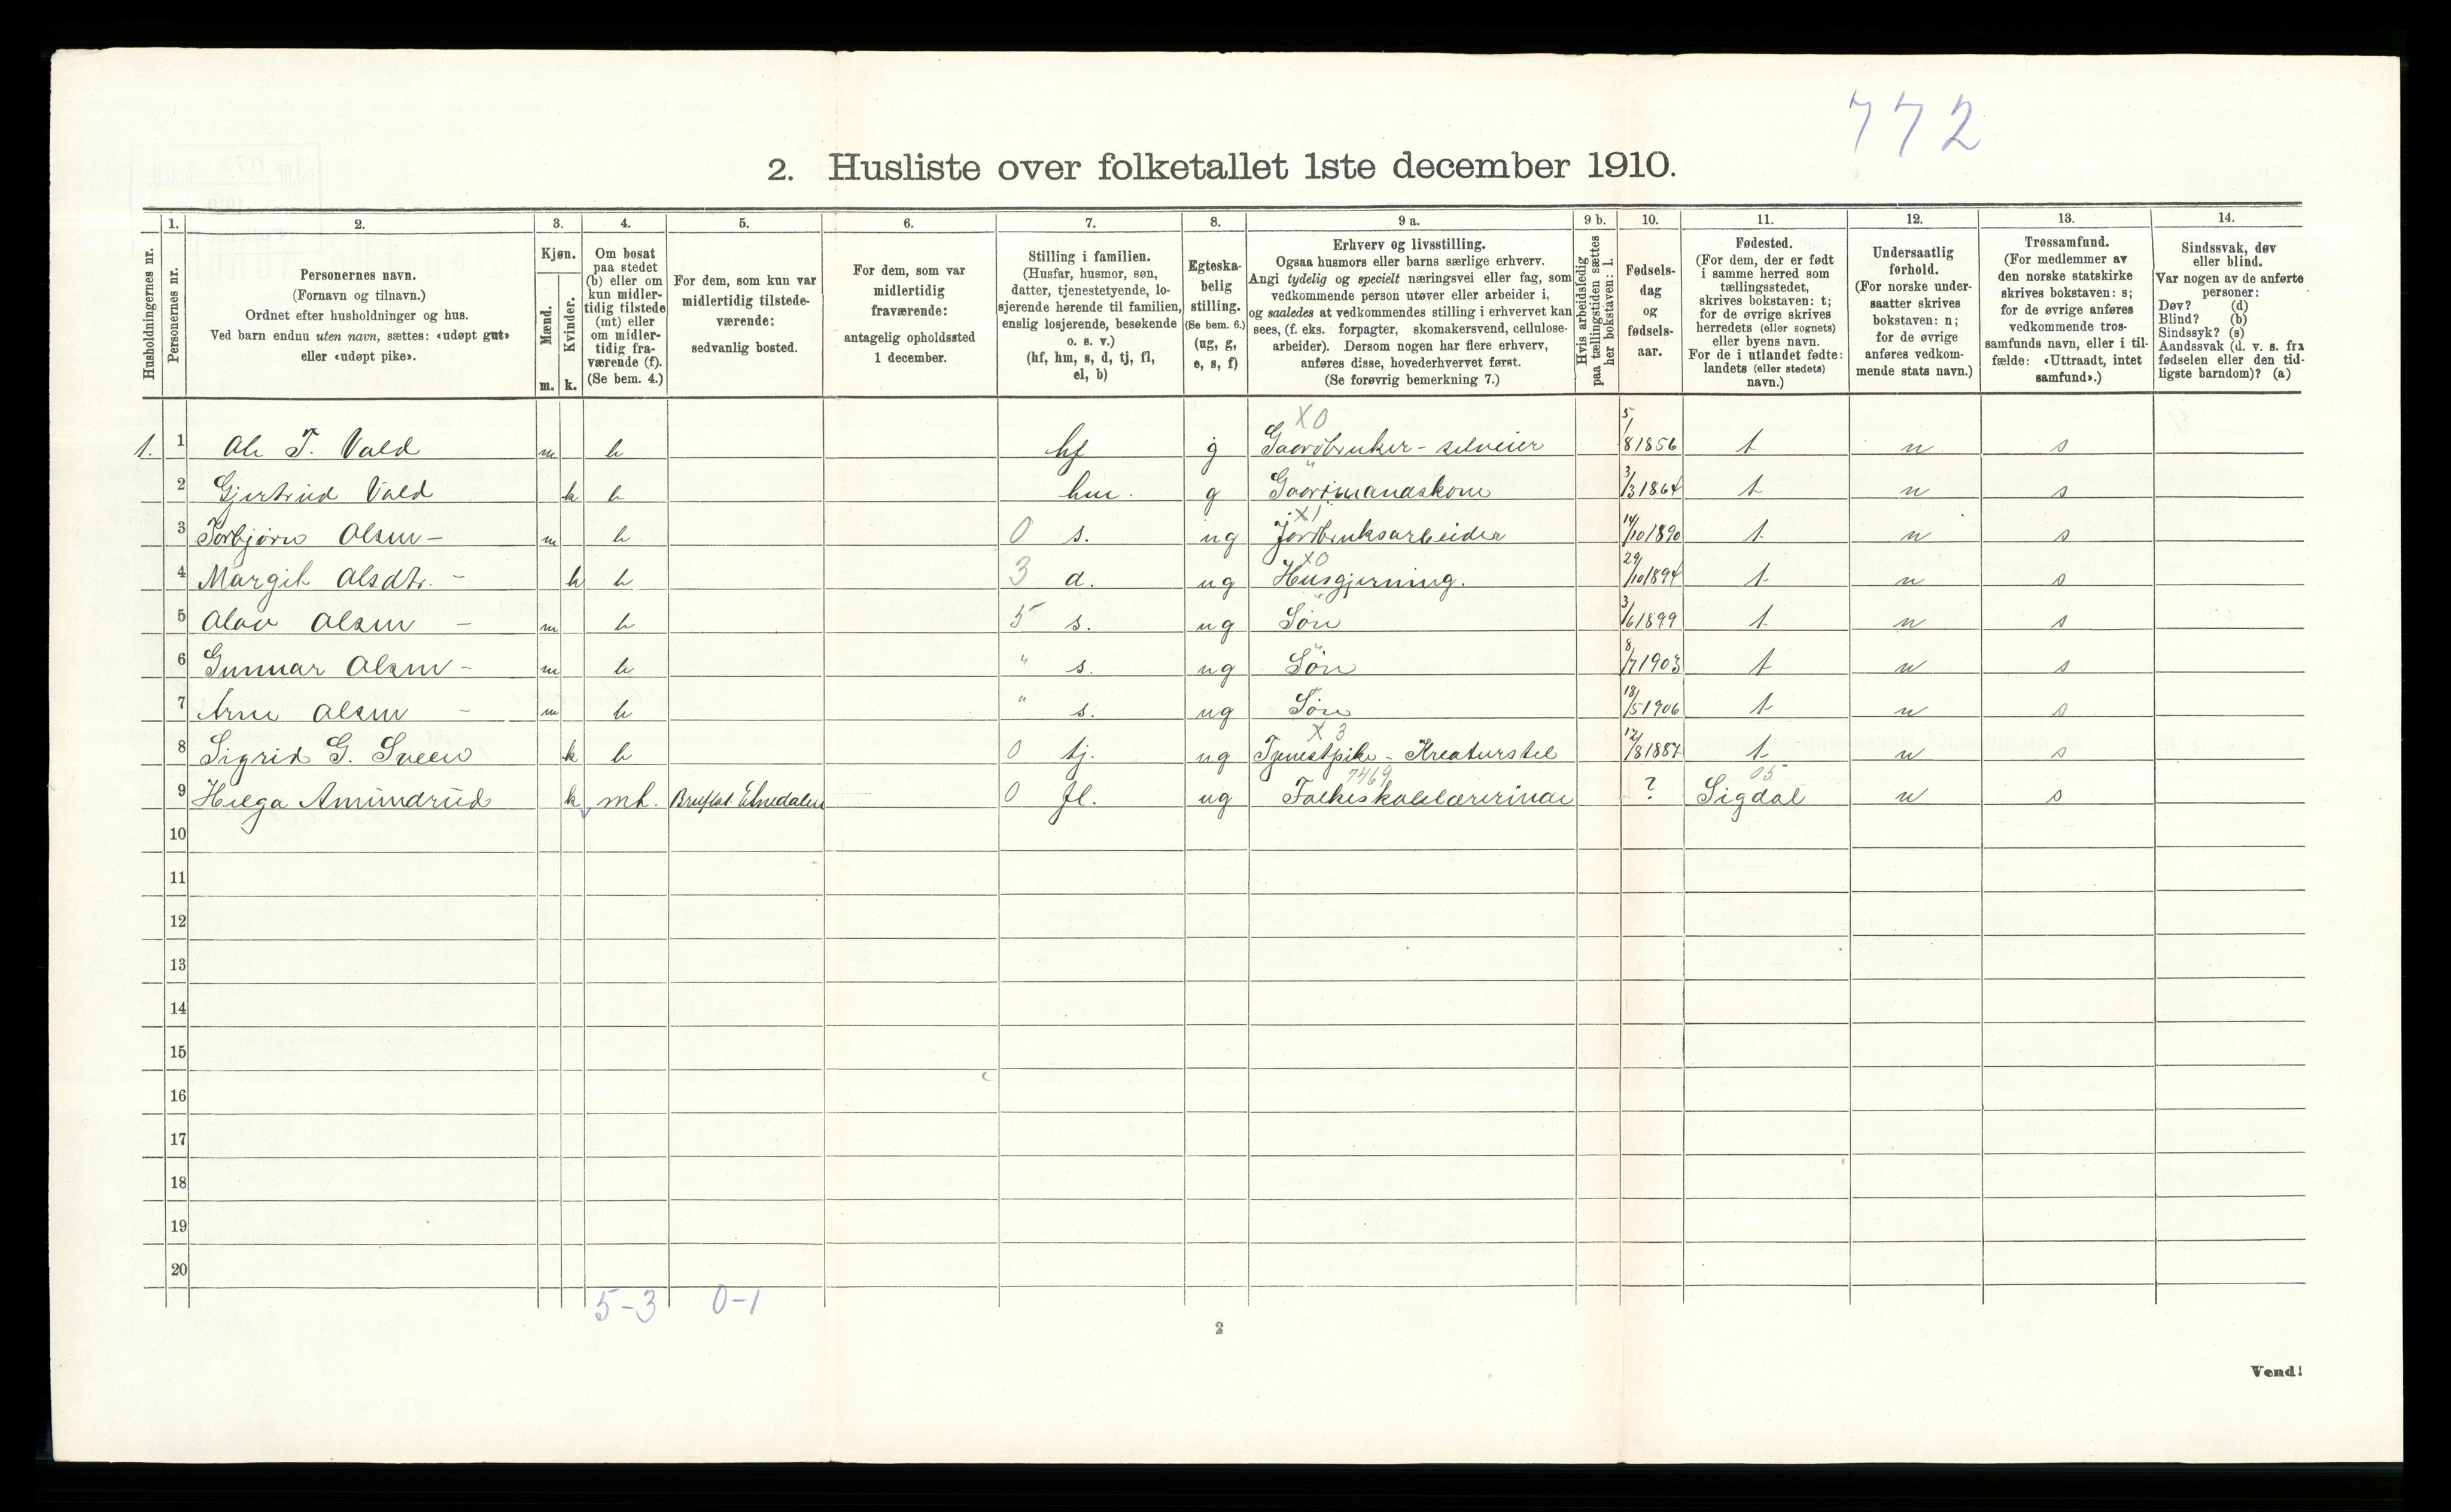 772
2. Husliste over folketallet 1ste december 1910.
Husholdningernes nr.
1. Personernes nr.
2. Personernes navn.
(Fornavn og tilnavn.)
Ordnet efter husholdninger og hus.
Ved barn endnu uten navn, sættes: «udøpt gut»
eller «udøpt pike».
3. Kjøn.
Mænd. m.
Kvinder. k.
4. Om bosat
paa stedet
(b) eller om
kun midler-
tidig tilstede
(mt) eller
om midler-
tidig fra-
værende (f).
(Se bem. 4.)
5. For dem, som kun var
midlertidig tilstede-
værende:
sedvanlig bosted.
6. For dem, som var
midlertidig
fraværende:
antagelig opholdssted
1 december.
7. Stilling i familien.
(Husfar, husmor, søn,
datter, tjenestetyende, lo-
sjerende hørende til familien,
enslig losjerende, besøkende
o. s. v.)
(hf, hm, s, d, tj, fl,
el, b)
8. Egteska-
belig
stilling.
(Se bem. 6.)
(ug, g,
e, s, f)
9 a. Erhverv og livsstilling.
Ogsaa husmors eller barns særlige erhverv.
Angi tydelig og specielt næringsvei eller fag, som
vedkommende person utøver eller arbeider i,
og saaledes at vedkommendes stilling i erhvervet kan
sees, (f. eks. forpagter, skomakersvend, cellulose-
arbeider). Dersom nogen har flere erhverv,
anføres disse, hovederhvervet først.
(Se forøvrig bemerkning 7.)
9 b. Hvis arbeidsledig
paa tællingstiden sættes
her bokstaven: l.
10. Fødsels-
dag
og
fødsels-
aar.
11. Fødested.
(For dem, der er født
i samme herred som
tællingsstedet,
skrives bokstaven: t;
for de øvrige skrives
herredets (eller sognets)
eller byens navn.
For de i utlandet fødte:
landets (eller stedets)
navn.)
12. Undersaatlig
forhold.
(For norske under-
saatter skrives
bokstaven: n;
for de øvrige
anføres vedkom-
mende stats navn.)
13. Trossamfund.
(For medlemmer av
den norske statskirke
skrives bokstaven: s;
for de øvrige anføres
vedkommende tros-
samfunds navn, eller i til-
fælde: «Uttraadt, intet
samfund».)
14. Sindssvak, døv
eller blind.
Var nogen av de anførte
personer:
Døv? (d)
Blind? (b)
Sindssyk? (s)
Aandssvak (d. v. s. fra
fødselen eller den tid-
ligste barndom)? (a)
X0
1. 1 Ole T. Vald m b hf g Gaardbruker - selveier 5/8 1856 t n s
2 Gjertrud Vald k b hm. g " Gaardmandskone 3/3 1864 t n s
X1
3 Torbjørn Olsen - m b 0 s. ug Jordbruksarbeider 14/10 1890 t n s
X0
4 Margit Olsdtr. - k b 3 d. ug Husgjerning. 29/10 1894 t n s
5 Olav Olsen - m b 5 s. ug " Søn 3/6 1899 t n s
6 Gunnar Olsen - m b " s. ug " Søn 8/7 1903 t n s
7 Arne Olsen - m b " s. ug " Søn 18/5 1906 t n s
X 3
8 Sigrid G. Sveen k b 0 tj. ug Tjenestpike - Kreaturstel 12/8 1887 t n s
7469 05
9 Helga Amundrud k mt. Bruflat Etnedalen 0 fl. ug Folkeskolelærerinde ? Sigdal n s
10
11
12
13
14
15
16
17
18
19
20
5-3 0-1
2
Vend!